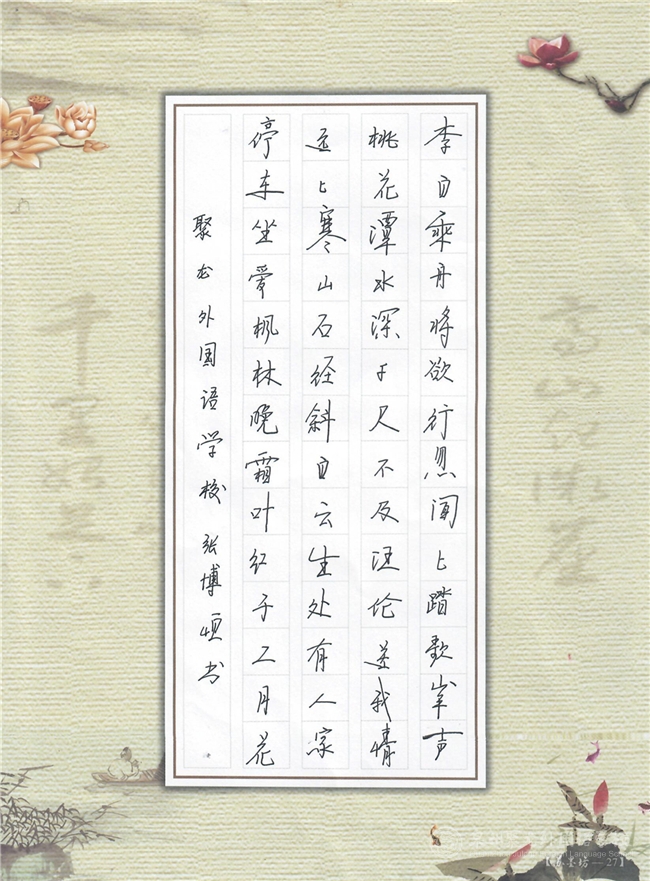 李白乘舟将欲行忽闻上踏歌岸声
桃花潭水深千尺不及汪伦送我情
远上寒山石径斜白云生处有人家
停车坐爱枫林晚霜叶红于二月花
聚龙外国语学校 张博恒书
Language
27